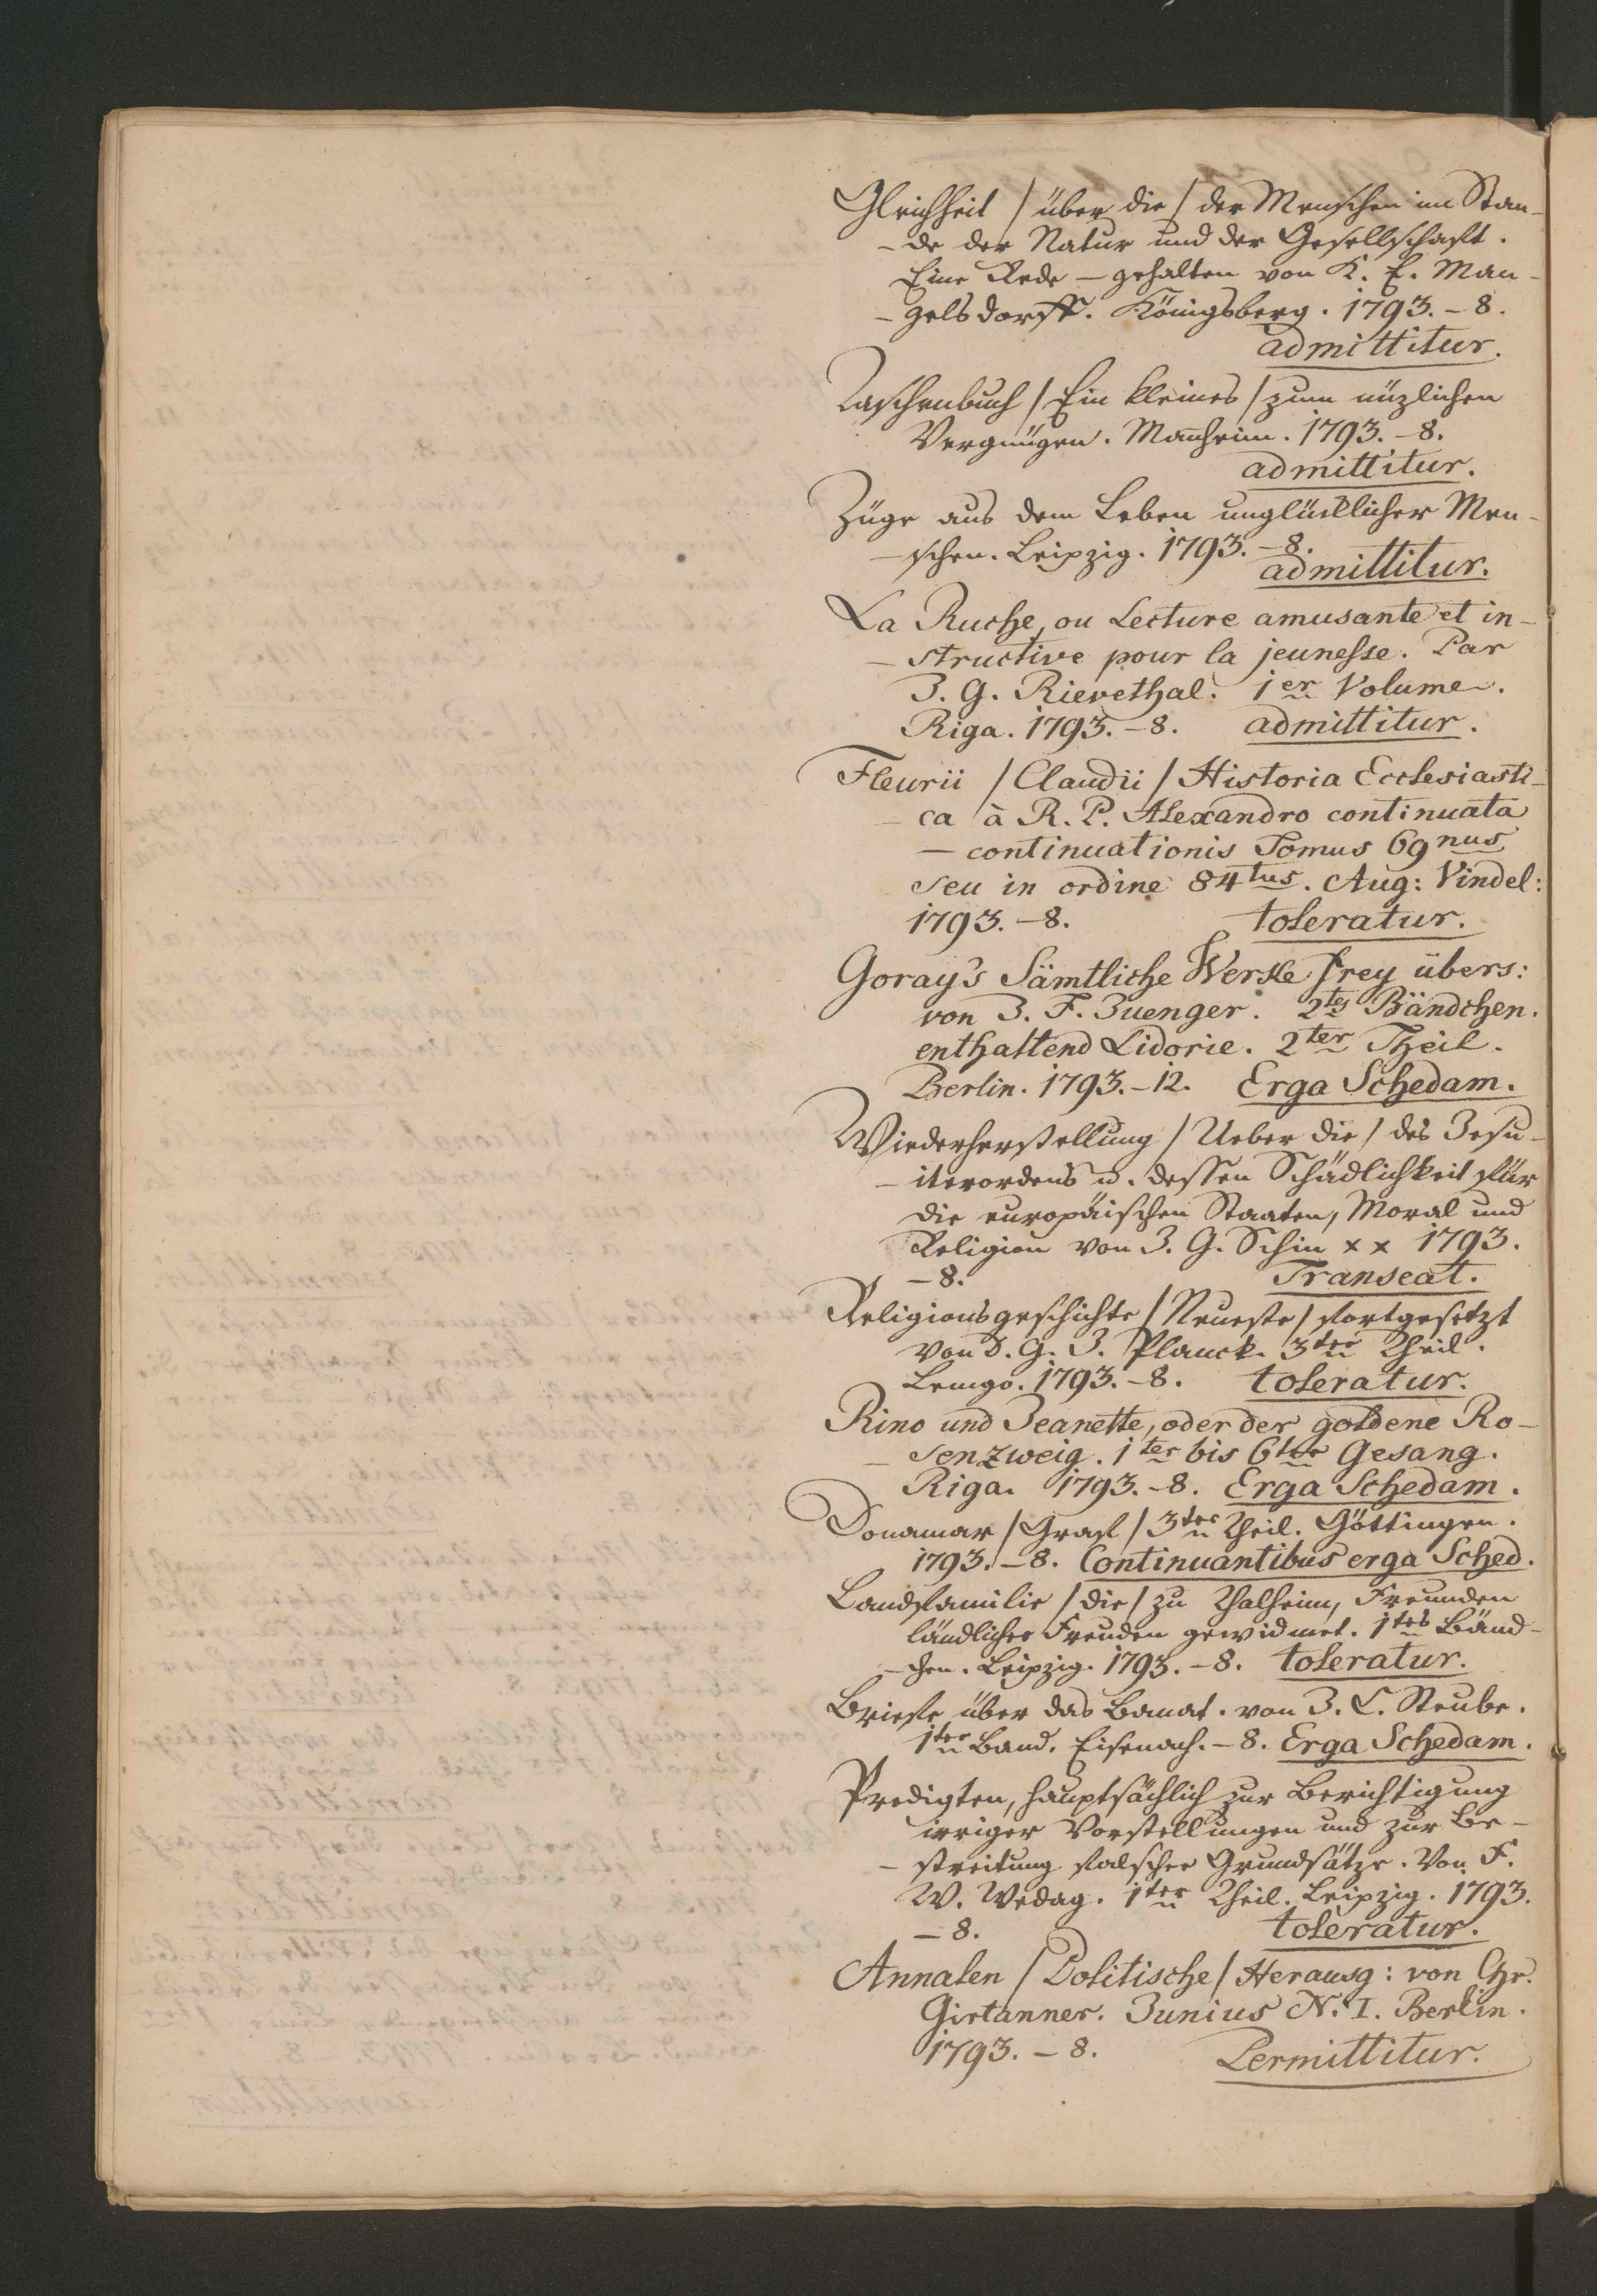 Gleichheit / über die / der Menschen im Stan-
- de der Natur und der Gesellschaft.
Eine Rede – gehalten von K. E. Man-
- gelsdorff. Königsberg. 1793. – 8.
admittitur.
Taschenbuch / Ein kleines / zum nüzlichen
Vergnügen. Manheim. 1793. – 8.
admittitur.
Züge aus dem Leben unglücklicher Men-
- schen. Leipzig. 1793. – 8.
admittitur.
La Ruche, ou Lecture amusante et in-
- structive pour la jeunesse. Par
J. G. Rievethal. 1er Volume.
Riga. 1793. – 8. admittitur.
Fleurii / Claudii / Historia Ecclesiasti-
- ca à R. P. Alexandro continuata
– continuationis Tomus 69nus
seu in ordine 84tus. Aug: Vindel:
1793. – 8. toleratur.
Goray's Sämtliche Werke frey übers:
von J. F. Juenger. 2tes Bändchen.
enthaltend Lidorie. 2ter Theil.
Berlin. 1793. – 12. Erga Schedam.
Wiederherstellung / Ueber die / des Jesu-
- iterordens u. dessen Schädlichkeit für
die europäischen Staaten, Moral und
Religion von J. G. Schin x x 1793.
– 8. Transeat.
Religionsgeschichte / Neueste / fortgesetzt
von D. G. J. Planck. 3ter Theil.
Lemgo. 1793. – 8. toleratur.
Rino und Jeanette, oder der goldene Ro-
- senzweig. 1ter bis 6ter Gesang.
Riga. 1793. – 8. Erga Schedam.
Donamar / Graf / 3ter Theil. Göttingen.
1793. – 8. Continuantibus erga Sched.
Landfamilie / die / zu Thalheim, Freunden
ländlicher Freuden gewidmet. 1tes Bänd-
- chen. Leipzig. 1793. – 8. toleratur.
Briefe über das Banat. von J. C. Steube.
1ter Band. Eisenach. – 8. Erga Schedam.
Predigten, hauptsächlich zur Berichtigung
irriger Vorstellungen und zur Be-
- streitung falscher Grundsätze. Von F.
W. Wedag. 1ter Theil. Leipzig. 1793.
– 8. toleratur.
Annalen / Politische / Herausg: von Chr.
Girtanner. Junius N. I. Berlin.
1793. – 8. Permittitur.